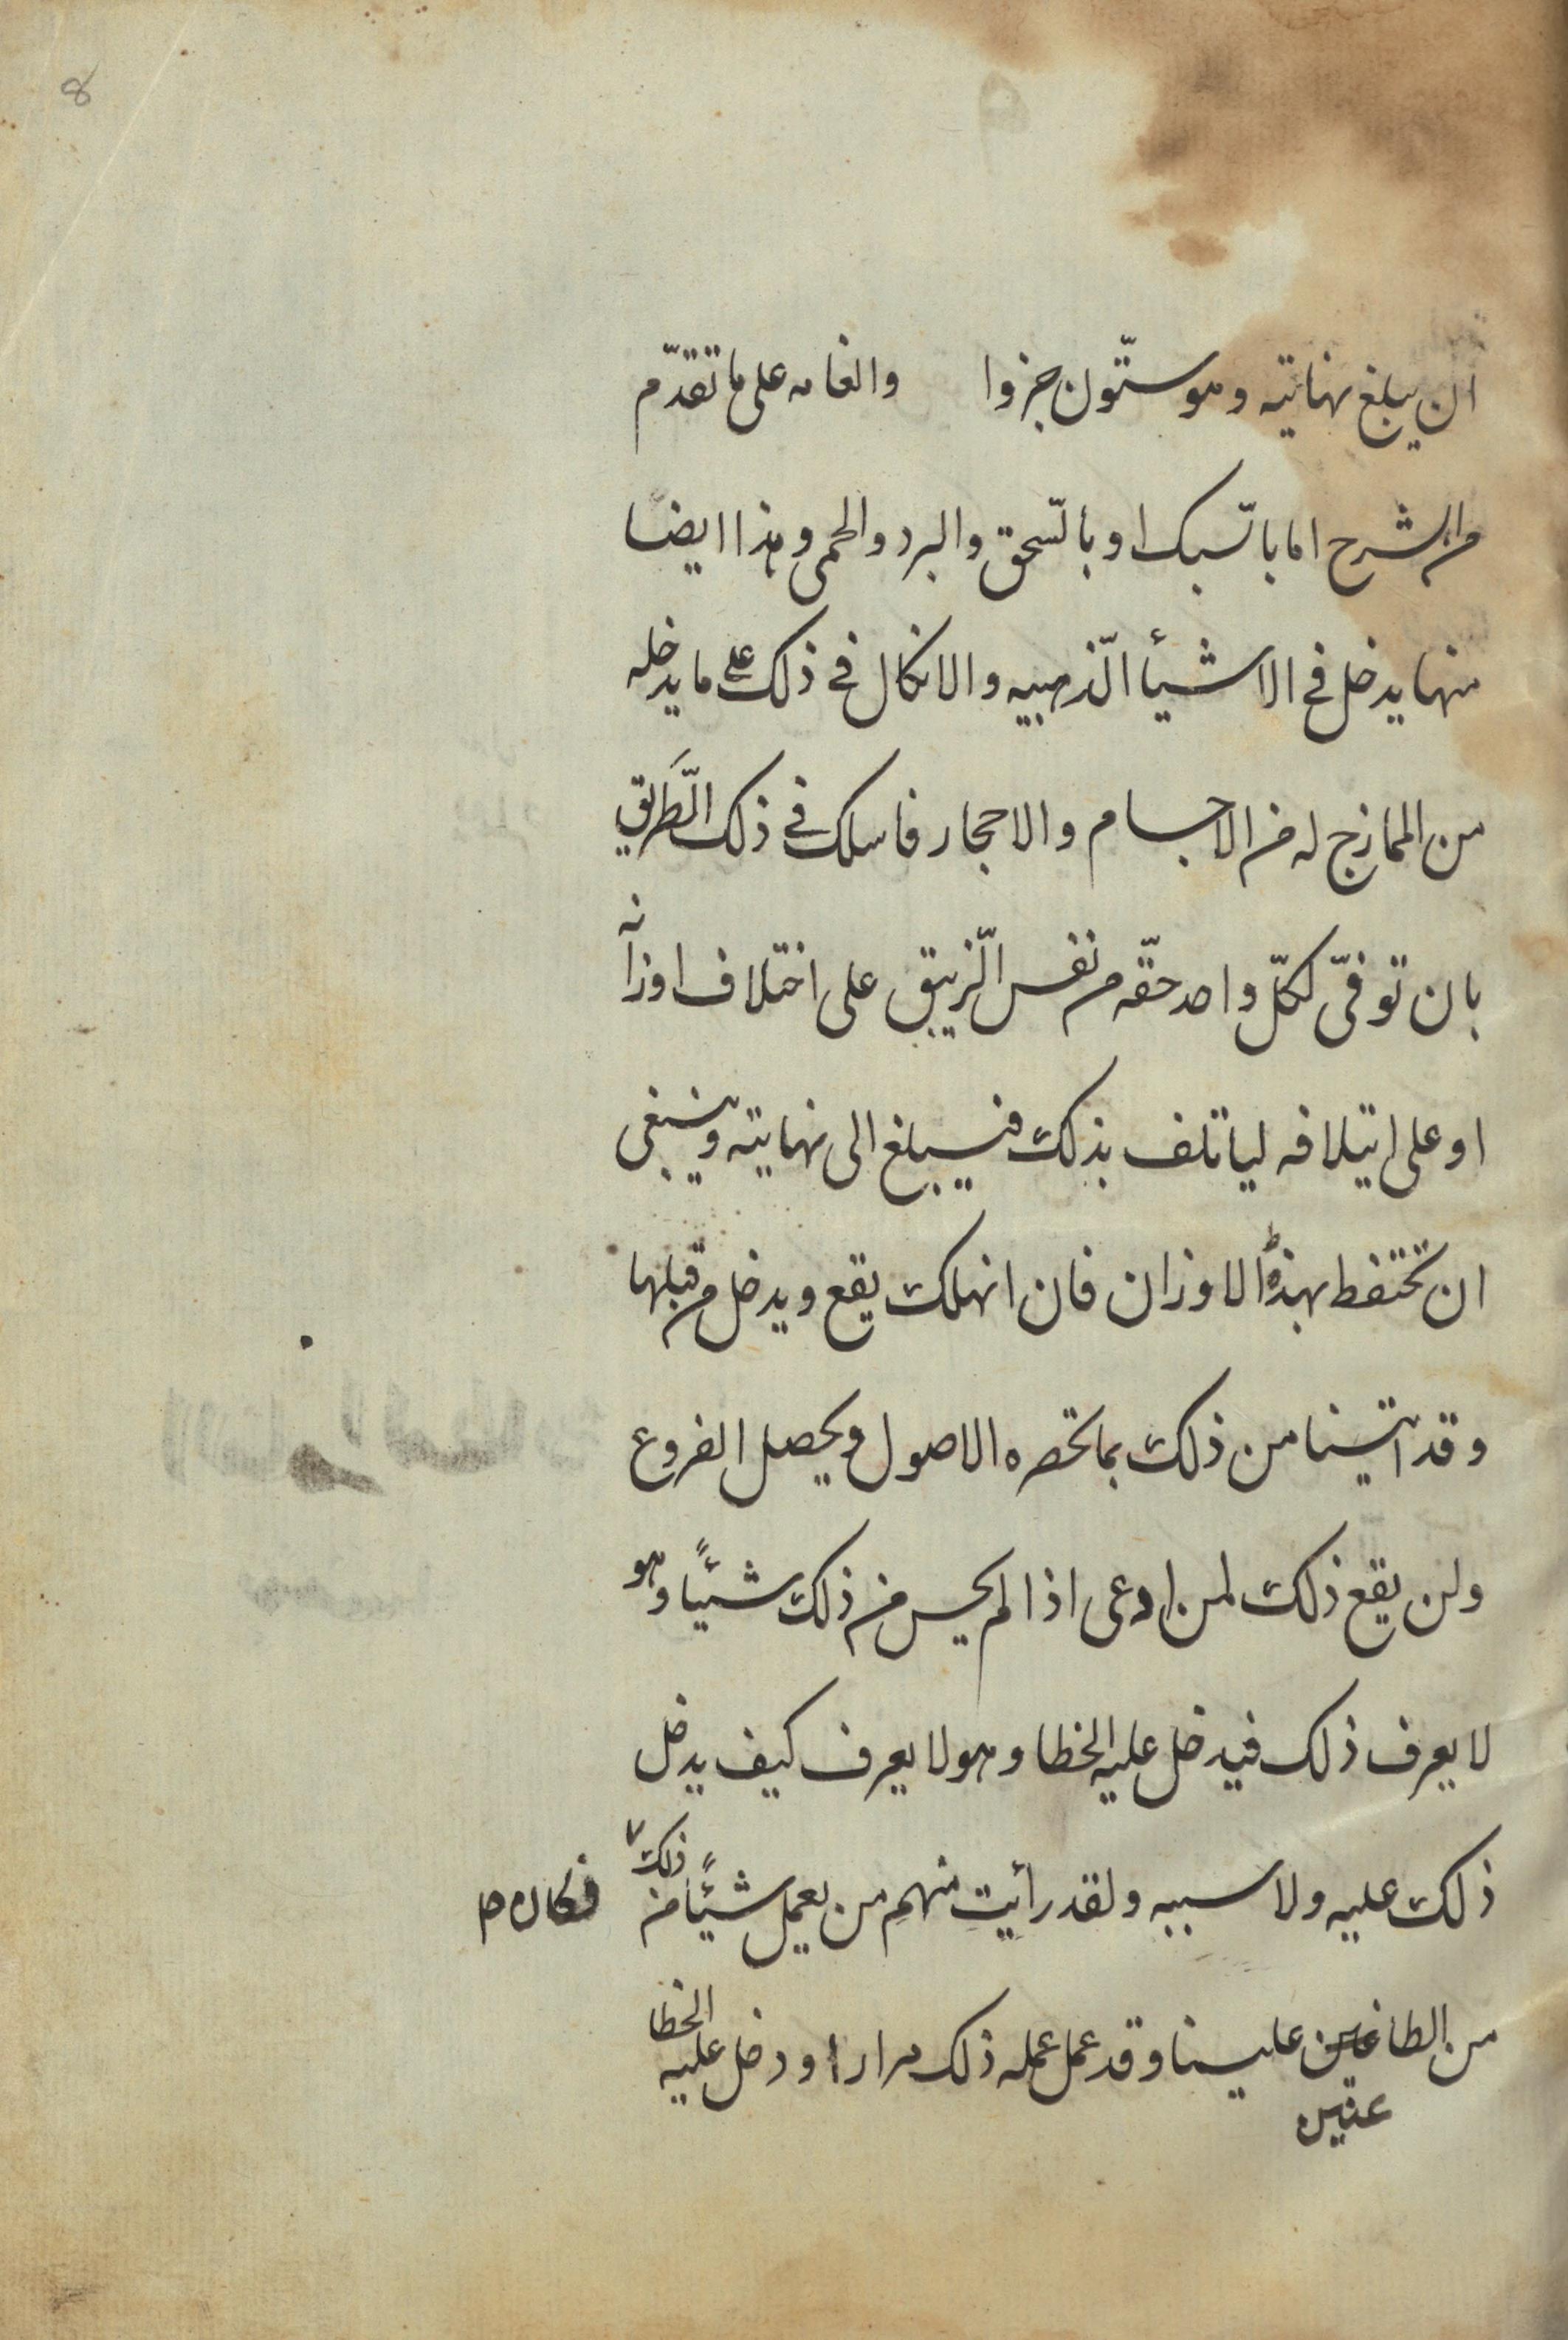 8
ان يبلغ نهايته وهو ستّون جزوا والغامه على ما تقدّم
من الشرح اما بالسّبك او بالسّحق والبرد والحمى وهذا ايضا
منها يدخل فى الاشيأ الذّهبيه والاتكال فى ذلك على ما يدخله
من الممازج له من الاجسام والاحجار فاسلك فى ذلك الطّريق
بان توفّى لكلّ واحد حقّه من نفس الزّيبق على اختلاف اوزانه
او على ايتلافه لياتلف بذلك فيبلغ الى نهايته وينبغى
ان تحتفظ بهذه الاوزان فان انهلك يقع ويدخل من قبلها
وقد اتينا من ذلك بما تحصره الاصول ويحصل الفروع
ولن يقع ذلك لمن ادعى اذا لم يحس من ذلك شيئًا وهو
لا يعرف ذلك فيدخل عليه الخطا وهو لا يعرف كيف يدخل
ذلك عليه ولا سببه ولقد رأيت منهم من يعمل شيئًا من ذلك
فكان
من الطاغين علينا وقد عمل عمله ذلك مرارا ودخل عليه الخطا
عنين